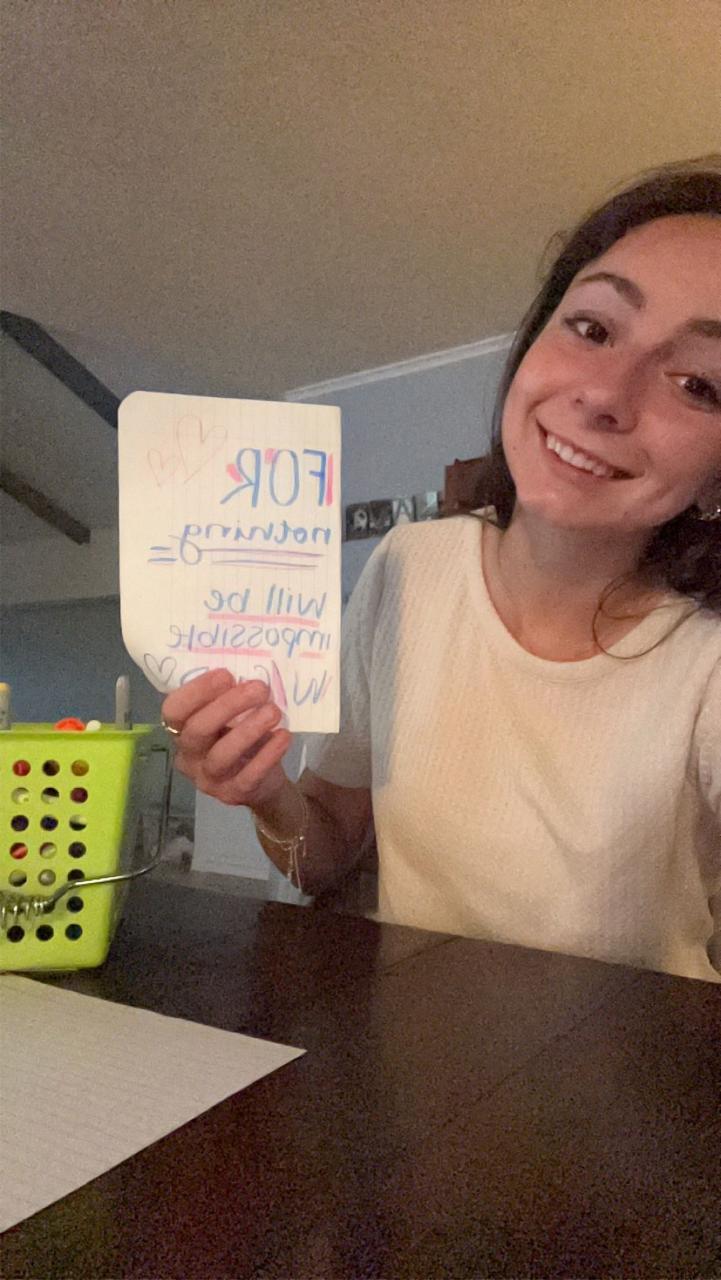 FOR
nothing
will be
impossible
W/GOD